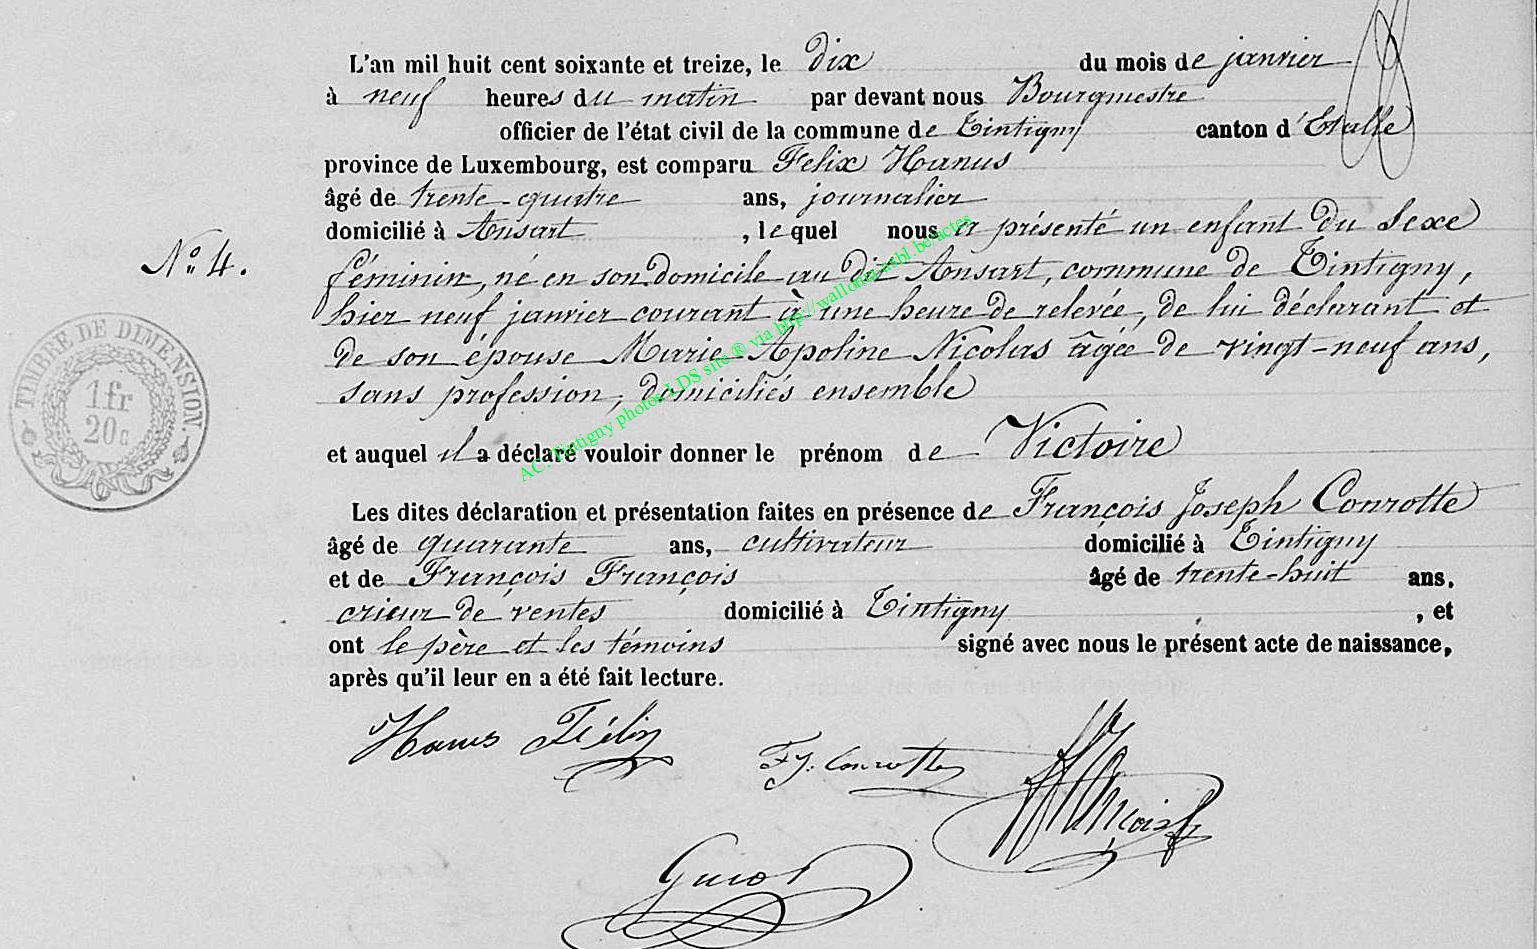 L'an mil huit cent soixante et treize, le dix du mois de janvier
à neuf heures du matin par devant nous Bourgmestre
officier de l'état civil de la commune de Tintigny canton d'Etalle
province de Luxembourg, est comparu Felix Hanus
âgé de trente-quatre ans, journalier
domicilié à Ansart, lequel nous a présenté un enfant du sexe
No 4.
féminin, né en son domicile au dit Ansart, commune de Tintigny,
hier neuf janvier courant à une heure de relevée, de lui déclarant et
de son épouse Marie-Apoline Nicolas âgée de vingt-neuf ans,
sans profession, domiciliés ensemble
TIMBRE DE DIMENSION.
1 fr
20 c
et auquel il a déclaré vouloir donner le prénom de Victoire
Les dites déclaration et présentation faites en présence de François Joseph Conrotte
âgé de quarante ans, cultivateur domicilié à Tintigny
et de François François âgé de trente-huit ans,
crieur de ventes domicilié à Tintigny, et
ont le père et les témoins signé avec nous le présent acte de naissance,
après qu'il leur en a été fait lecture.
Hanus Félix
F J. Conrotte
AC. Tintigny photos LDS site ® via http://wallonia-asbl.be/actes